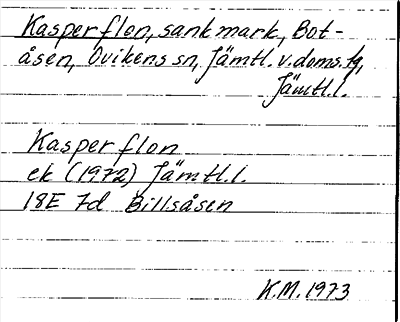 Kasperflon, sankmark, Bot-
åsen, Ovikens sn, Jämtl. v. doms. tg,
Jämtl.l.
Kasperflon
ek (1972) Jämtl.l.
18E 7d Billsåsen
K.M. 1973